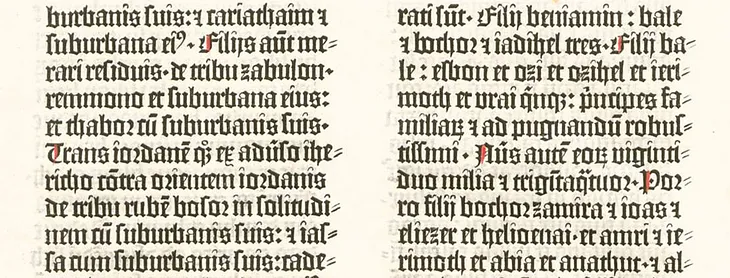 burbanis suis: ⁊ cariathaim ⁊
suburbana ei⁹. Filijs aūt me⸗
rari residuis. de tribu zabulon.
remmono et suburbana eius:
et thabor cū suburbanis suis.
Trans iordanē q̄ꝫ ex adūso ihe⸗
richo cōtra orientem iordanis
de tribu rubē bosor in solitudi⸗
nem cū suburbanis suis: ⁊ ias⸗
sa cum suburbanis suis: cade⸗
rati sūt. Filij beniamin: bale
⁊ bochor ⁊ iadihel tres. Filij ba⸗
le: esbon et ozi et ozihel et ieri⸗
moth et vrai q̄nqꝫ: p̄ncipes fa⸗
miliaꝝ ⁊ ad pugnandū robus⸗
tissimi. Nūs autē eoꝝ viginti⸗
duo milia ⁊ trigītaq̄tuor. Por⸗
ro filij bochor zamira ⁊ ioas ⁊
eliezer et helioenai. et amri ⁊ ie⸗
rimoth et abia et anathut. ⁊ al⸗